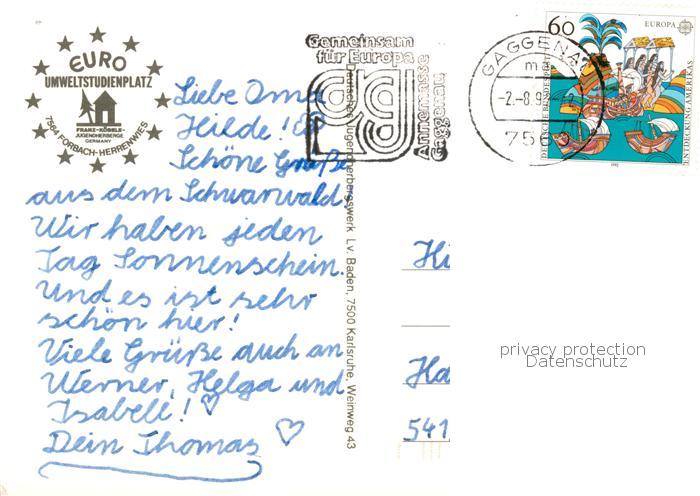 EURO
UMWELTSTUDIENPLATZ
FRANZ-KÖBELE-
JUGENDHERBERGE
GERMANY
7564 FORBACH-HERRENWIES
Liebe Oma
Hilde!
Schöne Grüße
aus dem Schwarwald.
Wir haben jeden
Tag Sonnenschein.
Und es ist sehr
schön hier!
Viele Grüße auch an
Werner, Helga und
Isabell!
Dein Thomas
Deutsches Jugendherbergswerk Lv. Baden, 7500 Karlsruhe, Weinweg 43
Gemeinsam
für Europa
Annemasse
Gaggenau
GAGGENA
-2.-8.9
756
60
EUROPA
DEUTSCHE BUNDESPOST
ENTDECKUNG AMERIKAS
1992
Hi
Ha
541
privacy protection
Datenschutz